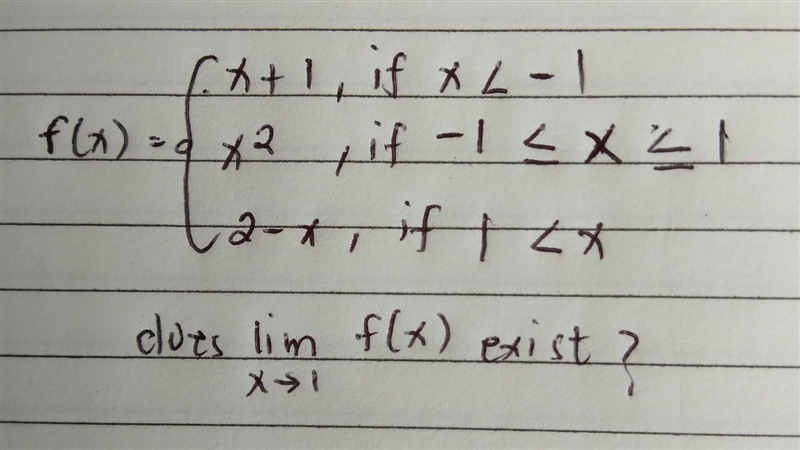 f(x) = { x+1, if x < -1
x², if -1 ≤ x ≥ 1
2-x, if 1 < x
does lim x→1 f(x) exist?